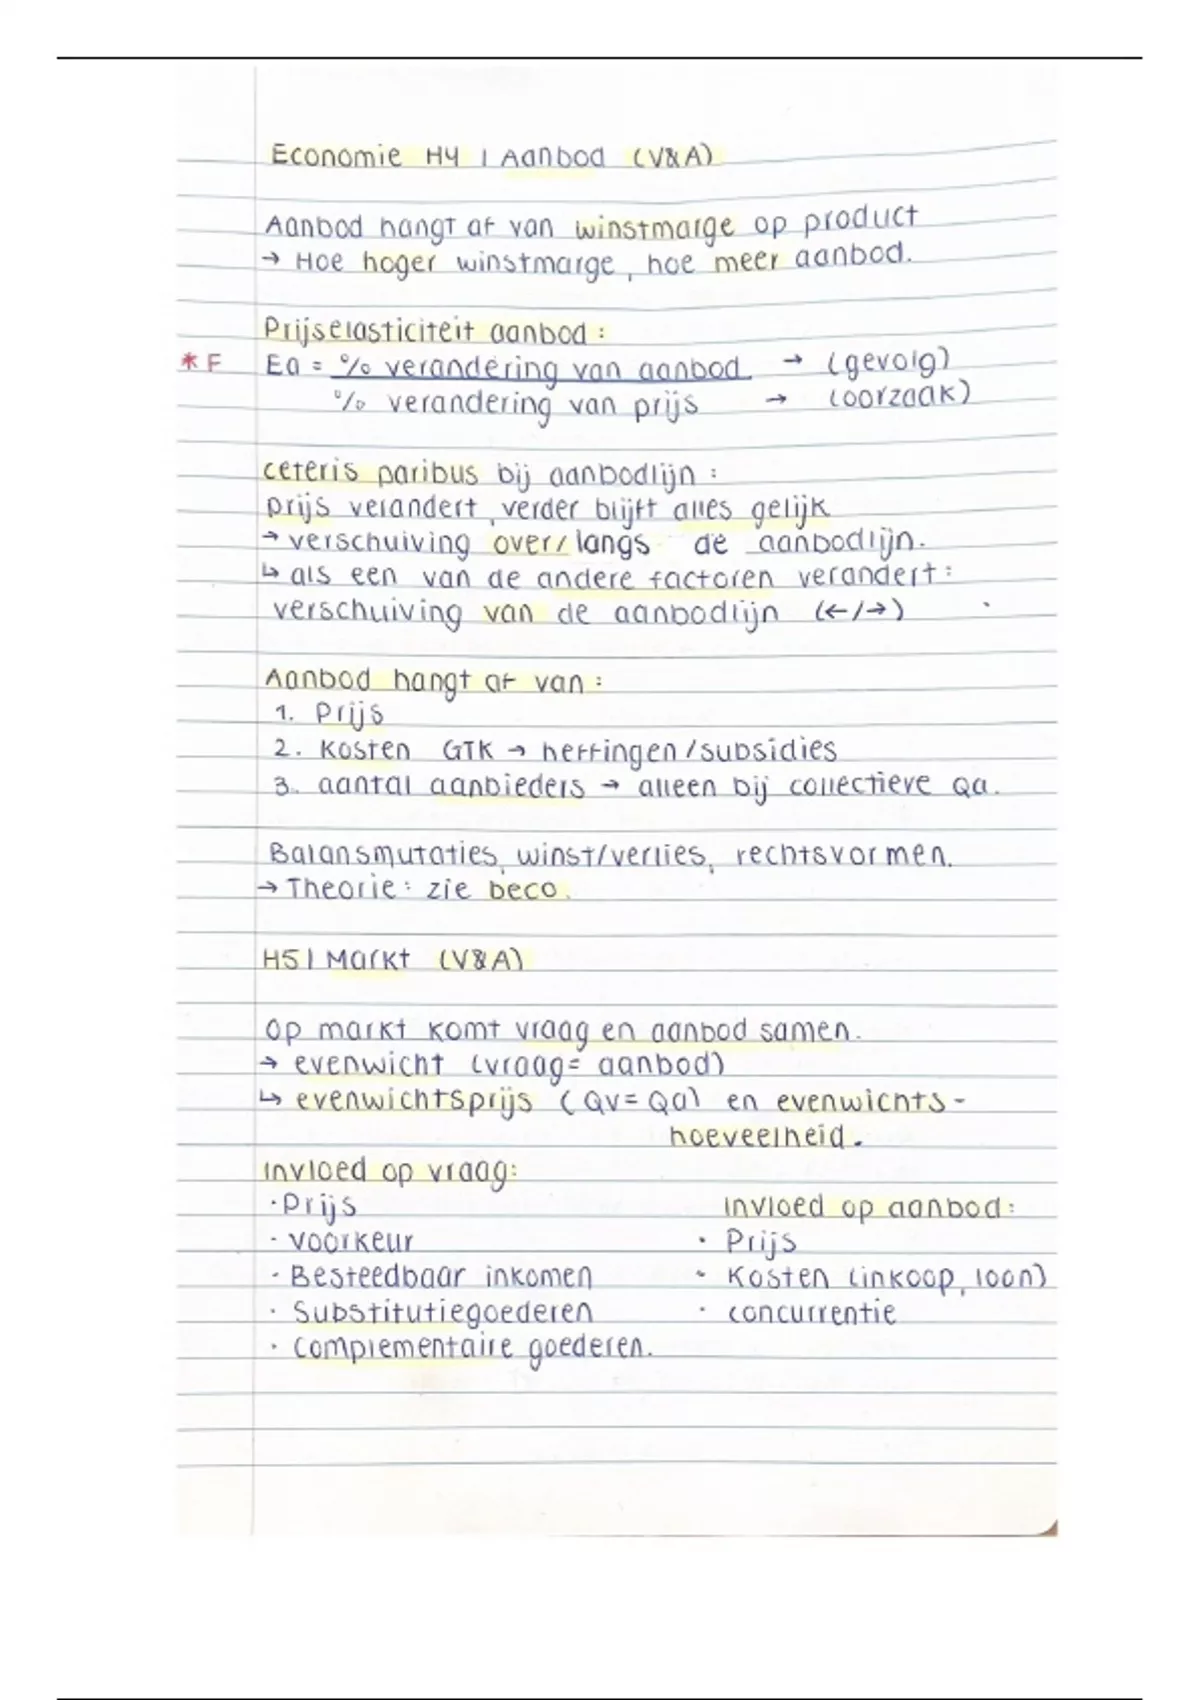 Economie H4 | Aanbod (V&A)
Aanbod hangt af van winstmarge op product
→ Hoe hoger winstmarge, hoe meer aanbod.
Prijselasticiteit aanbod:
*F Ea = % verandering van aanbod → (gevolg)
% verandering van prijs → (oorzaak)
ceteris paribus bij aanbodlijn:
prijs verandert, verder blijft alles gelijk
→ verschuiving over/langs de aanbodlijn.
↳ als een van de andere factoren verandert:
verschuiving van de aanbodlijn (←/→)
Aanbod hangt af van:
1. Prijs
2. Kosten GTK → heffingen/subsidies
3. aantal aanbieders → alleen bij collectieve Qa.
Balansmutaties, winst/verlies, rechtsvormen.
→ Theorie: zie beco.
H5 | Markt (V&A)
Op markt komt vraag en aanbod samen.
→ evenwicht (vraag = aanbod)
↳ evenwichtsprijs (Qv = Qa) en evenwichts-
hoeveelheid.
Invloed op vraag:
· Prijs
· Voorkeur
· Besteedbaar inkomen
· Substitutiegoederen
· Complementaire goederen.
Invloed op aanbod:
· Prijs
· Kosten (inkoop, loon)
· concurrentie